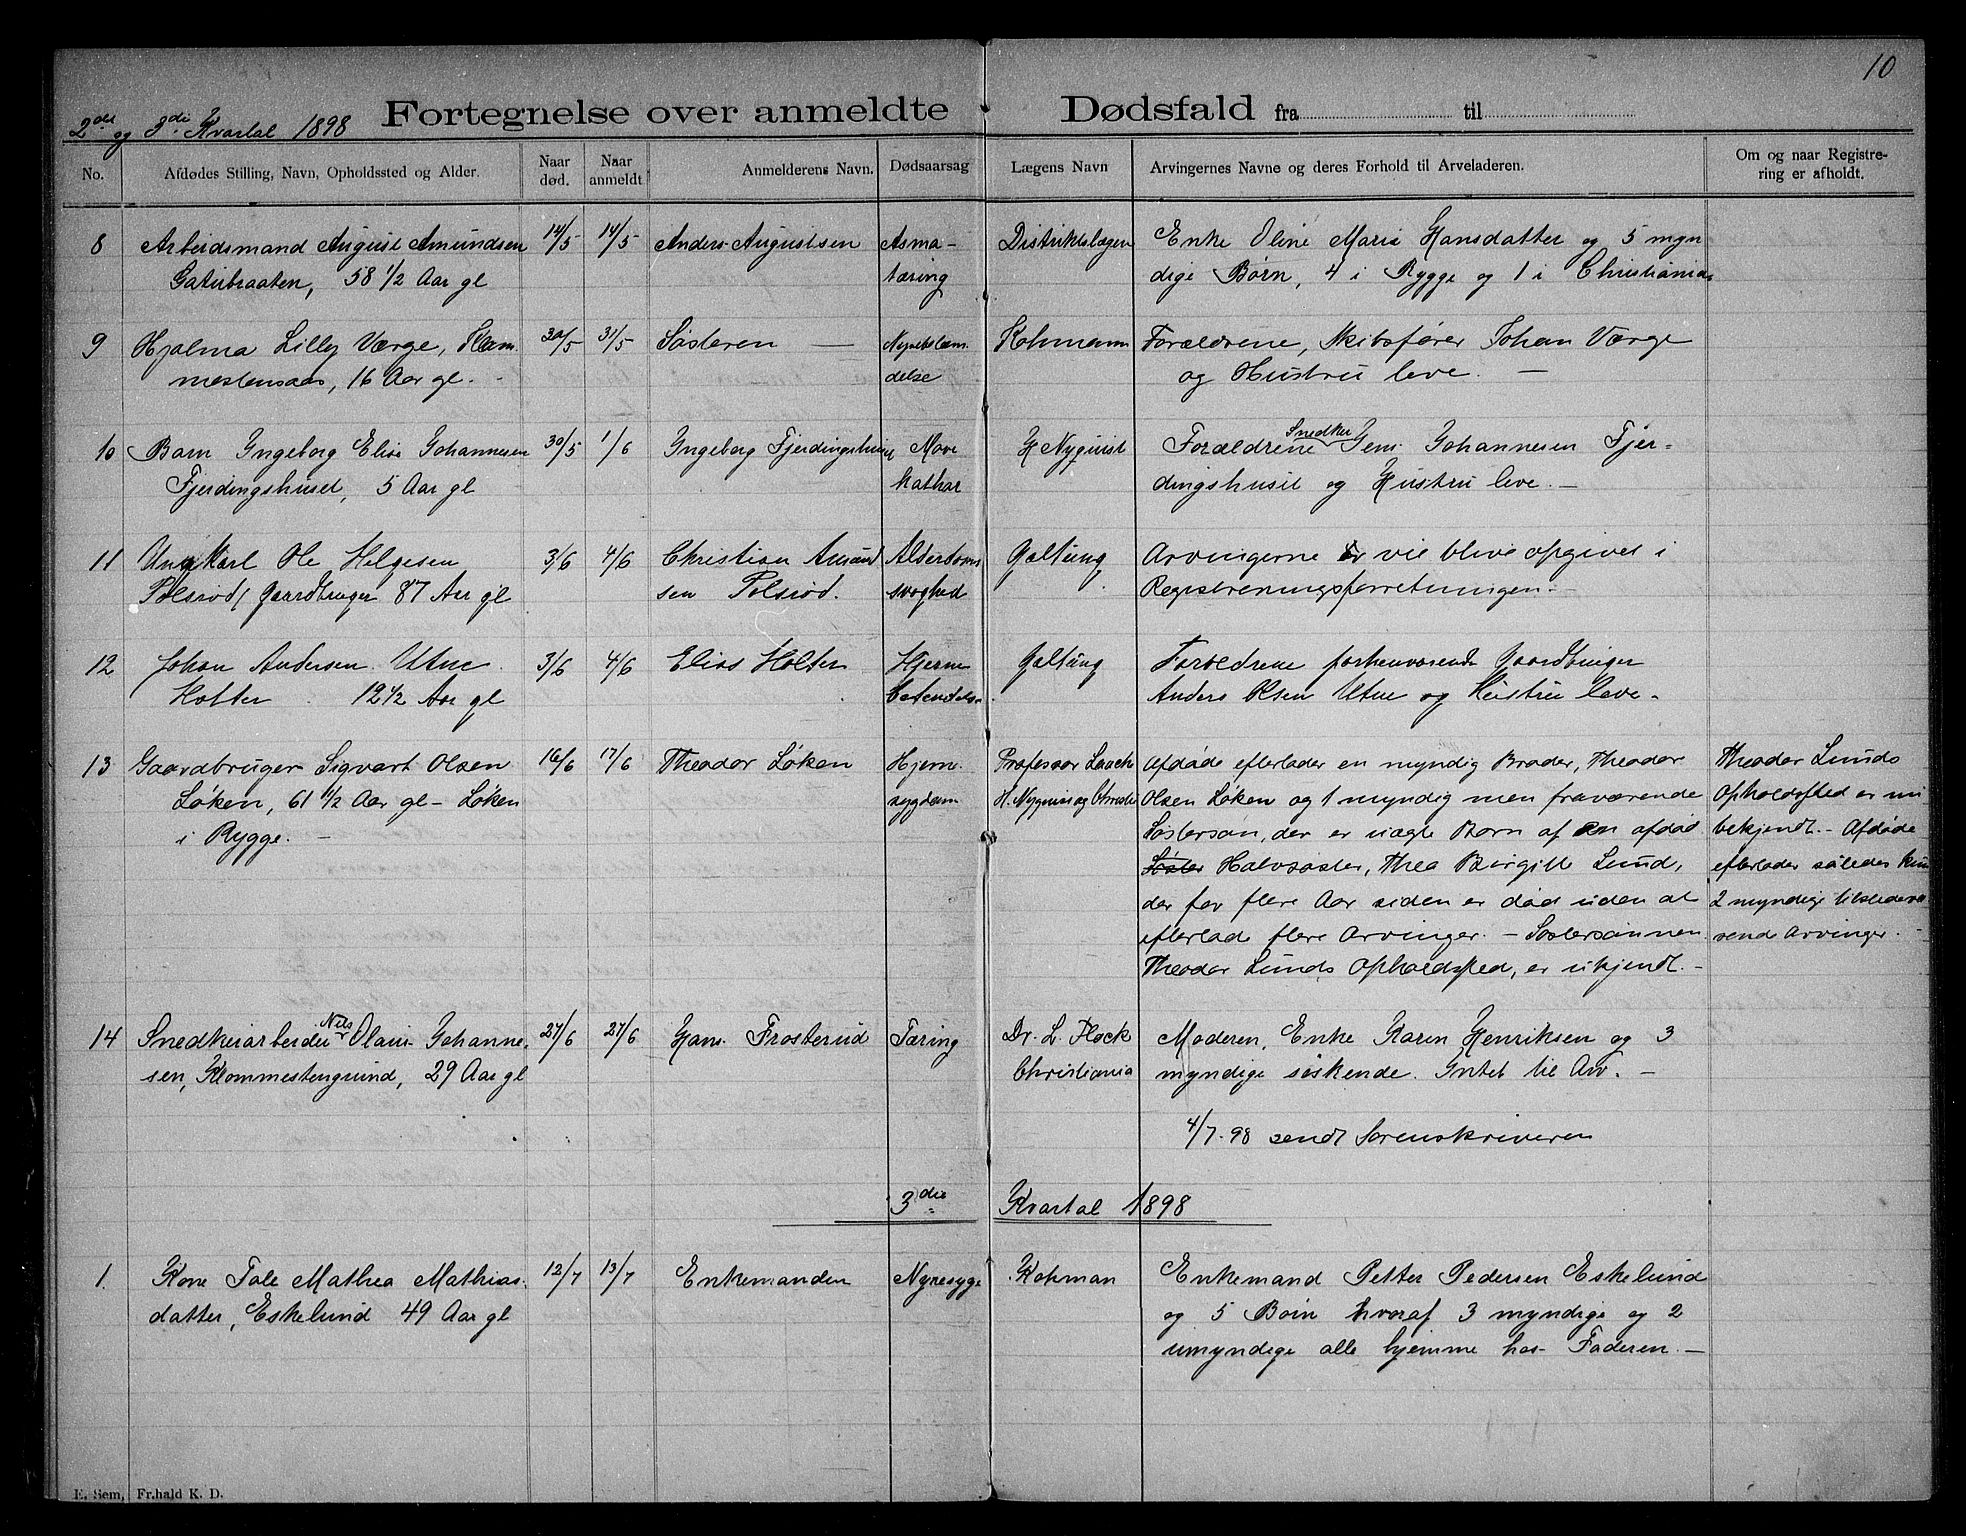 10
2det og 3die Kvartal 1898 Fortegnelse over anmeldte Dødsfald fra til
No. Afdødes Stilling, Navn, Opholdssted og Alder. Naar død. Naar anmeldt Anmelderens Navn. Dødsaarsag Lægens Navn Arvingernes Navne og deres Forhold til Arveladeren. Om og naar Registrering er afholdt.
8 Arbeidsmand August Amundsen 14/5 14/5 Anders Augustsen Asma- Distriktslægen Enke Oline Marie Hansdatter og 5 myn
58 1/2 Aar gl tæring dige Børn, 4 i Rygge og 1 i Christiania
9 Hjalma Lilly Værge, 30/5 31/5 Søsteren — Kohmann Forældrene, Skibsfører Johan Værge
16 Aar gl. delse og Hustru leve. —
10 Barn Ingeborg Elise Johannesen 30/5 1/6 Ingeborg Fjerdingshuset Mave H Nyquist Forældrene Snedker Jens Johannesen Fjer-
Fjerdingshuset, 5 Aar gl kathar dingshuset og Hustru leve. —
11 Ungkarl Ole Helgesen 3/6 4/6 Christian Amund Alderdoms Galtung Arvingerne vil blive opgivet i
Polsrød, Gaardbruger 87 Aar gl sen Polsrød. svaghed Registreringsforretningen. —
12 Johan Andersen Utne 3/6 4/6 Elias Holter Hjerne Galtung Forældrene forhenværende Gaardbruger
Holter 12 1/2 Aar gl Anders Olsen Utne og Hustru leve. -
13 Gaardbruger Sigvart Olsen 16/6 17/6 Theodor Løken Hjerne- Professor Afdøde efterlader en myndig Broder, Theodor Theodor Lunds
Løken, 61 1/2 Aar gl - Løken sygdom H. Nyquist og Olsen Løken og 1 myndig men fraværende Opholdssted er u
i Rygge. — Søstersøn, der er uægte Barn af en afdød bekjendt. - Afdøde
Søster Halvsøster, Thea Birgitte Lund, efterlader således kun
der for flere Aar siden er død uden at 2 myndige tilstedevæ
efterlade flere Arvinger. - Søstersønnen rende Arvinger. -
Theodor Lunds Opholdssted, er ukjendt. -
14 Snedkerarbeider Nils Olaus Johanne- 27/6 27/6 Hans Frosterud Tæring Dr. L. Flock Moderen, Enke Karen Henriksen og 3
sen, Klommestengrund, 29 Aar gl Christiania myndige søskende. Intet til Arv. -
4/7-98 sendt Sorenskriveren
3die Kvartal 1898
1. Kone Tale Mathea Mathias- 12/7 13/7 Enkemanden Nyresyge Kohman Enkemand Petter Pedersen Eskelund
datter, Eskelund 49 Aar gl og 5 Børn hvoraf 3 myndige og 2
umyndige alle hjemme hos Faderen. —
E. Sem, Fr.hald K. D.